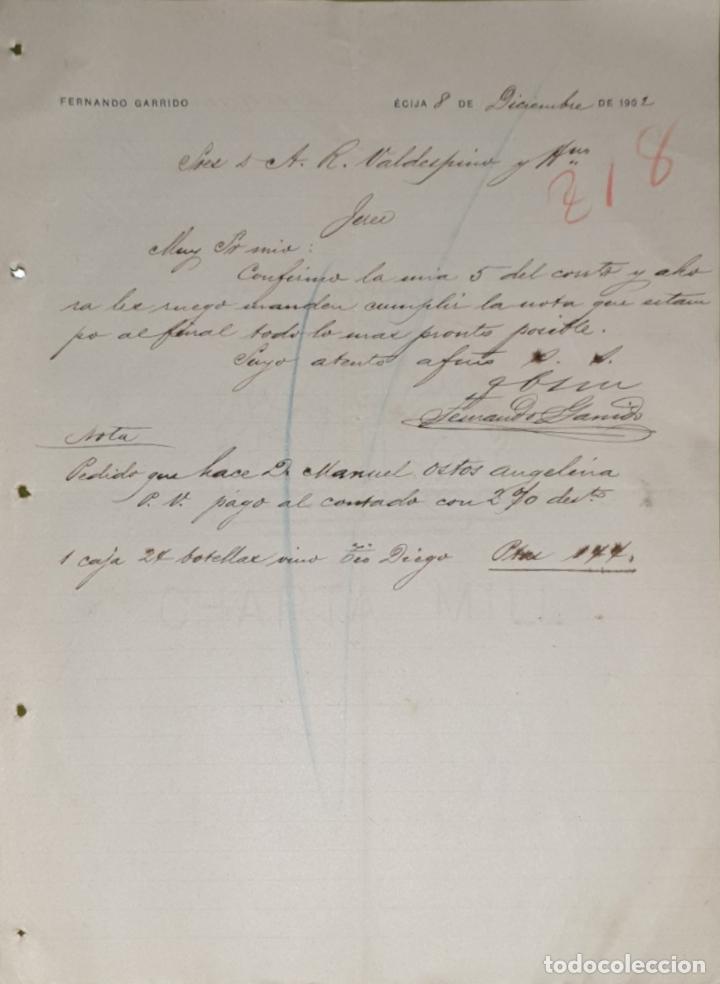 FERNANDO GARRIDO ÉCIJA 8 DE Diciembre DE 1902
Sres D A. R. Valdespino y Hnos
218
Jerez
Muy Sr mio:
Confirmo la mia 5 del corrte y aho
ra les ruego manden cumplir la nota que estam
po al final todo lo mas pronto posible.
Suyo atento afmo S. S.
q b s m
Fernando Garrido
Nota
Pedido que hace D. Manuel Ostos Angelina
P. V. pago al contado con 2 % desto
1 caja 24 botellas vino Tio Diego Ptas 144.
todocoleccion